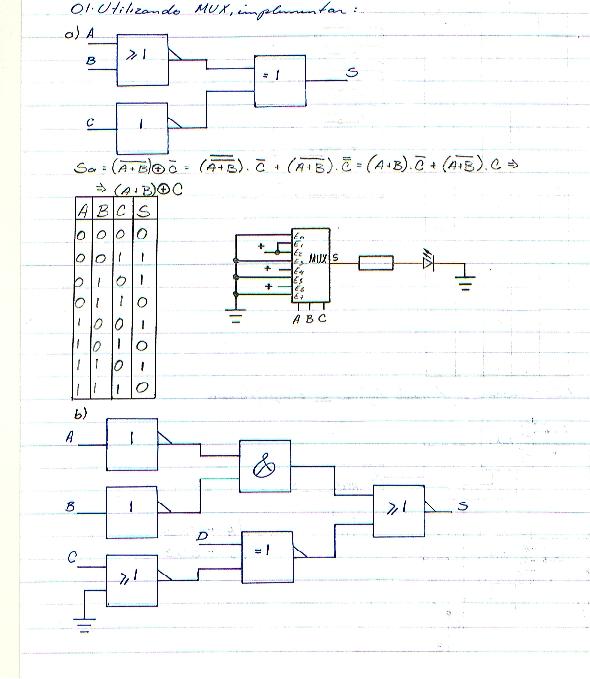 01. Utilizando MUX, implementar:
a) A
B
≥1
=1
S
C
1
Sa = (\overline{A+B})⊕\overline{C} = (\overline{\overline{A+B}}).\overline{C} + (\overline{A+B}).\overline{\overline{C}} = (A+B).\overline{C} + (\overline{A+B}).C ⇒
⇒ (A+B)⊕C
A B C S
0 0 0 0
0 0 1 1
0 1 0 1
0 1 1 0
1 0 0 1
1 0 1 0
1 1 0 1
1 1 1 0
E0
+ E1
E2
E3 MUX S
+ E4
E5
+ E6
E7
A B C
b)
A 1
&
B 1
≥1 S
D
=1
C
≥1